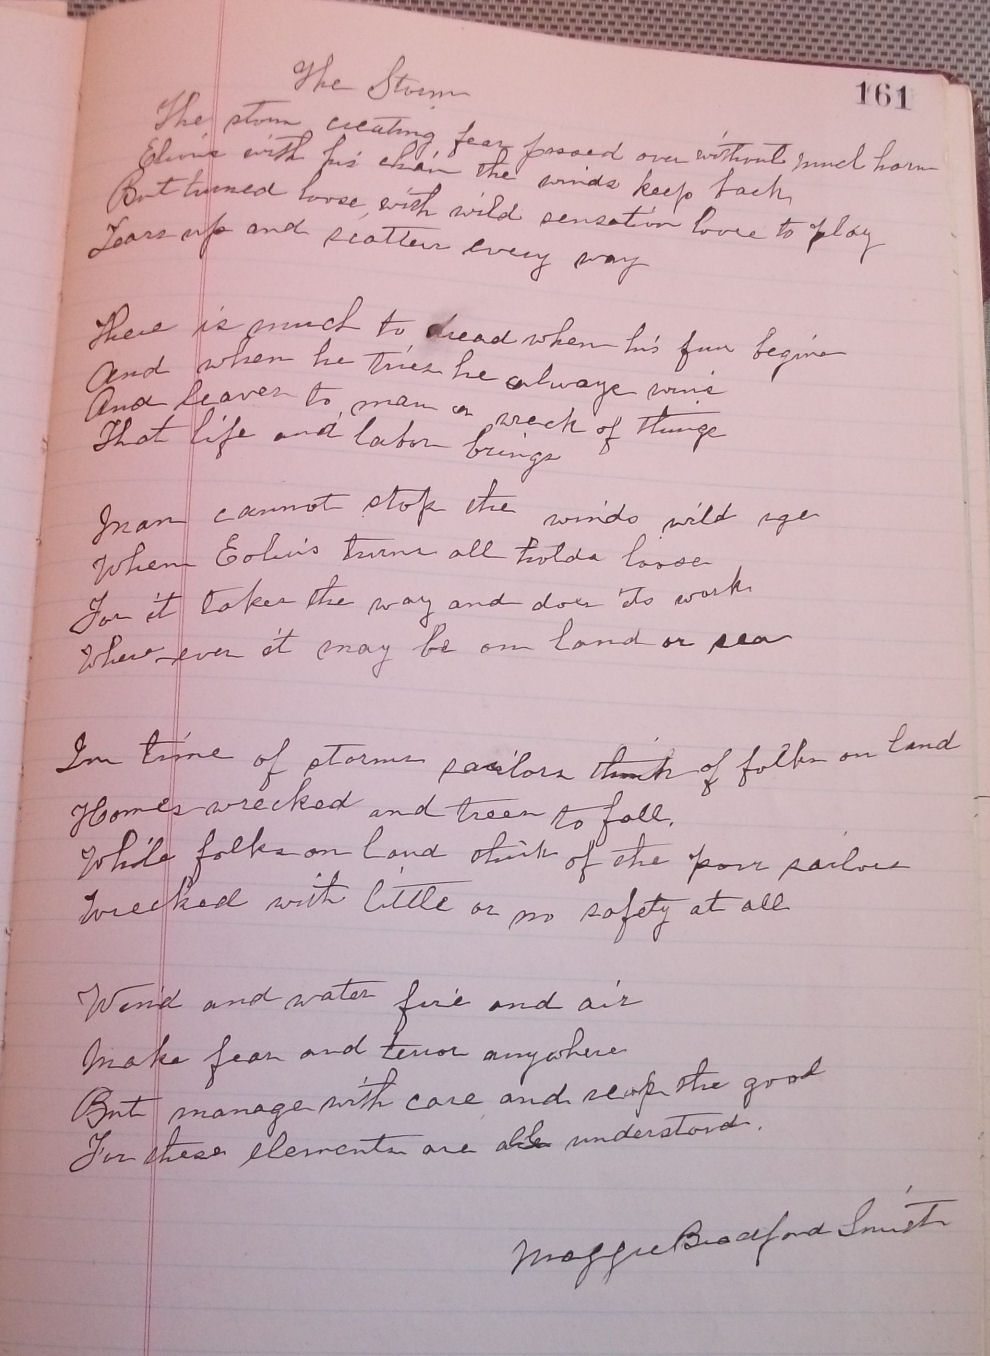 161
The Storm
The storm creating fear passed over without much harm
Elvis with his chain the winds keep back,
But turned loose, with wild sensation love to play
Tears up and scatters every way
There is much to dread when his fun begins
And when he tries he always wins
And leaves to man a wreck of things
That life and labor brings
Man cannot stop the winds wild
When Eolus turns all holds loose
For it takes the way and does its work
Where-ever it may be on land or sea
In time of storms sailors think of folks on land
Homes wrecked and trees to fall.
While folks on land think of the poor sailors
Wrecked with little or no safety at all
Wind and water fire and air
Make fear and terror anywhere
But manage with care and reap the good
For these elements are all understood.
Maggie Bradford Smith